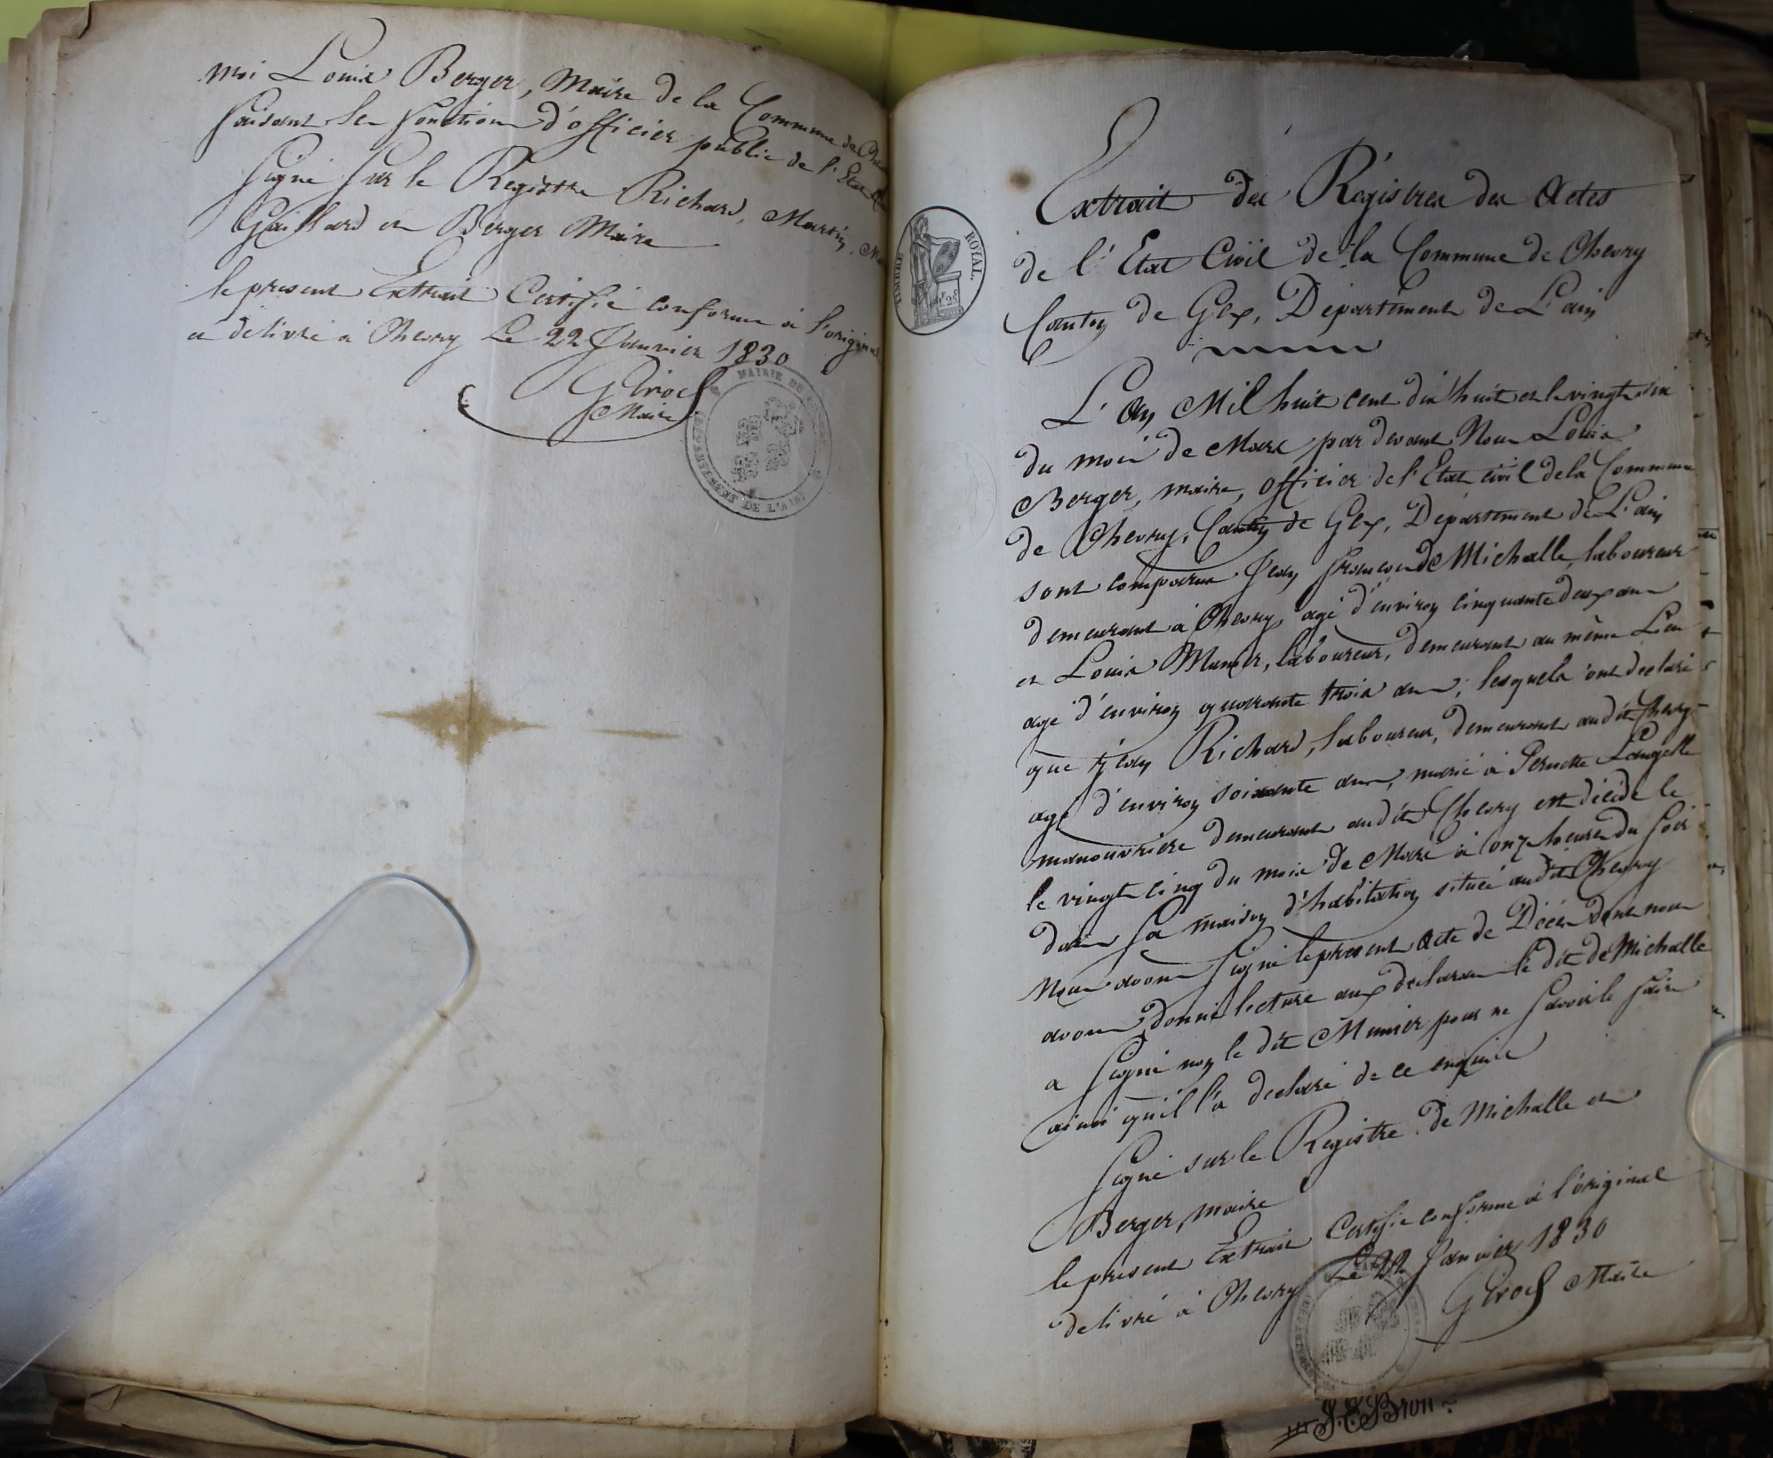 moi Louis Berger, Maire de la Commune de
faisant les fonctions d'officier public de l'Etat
Signé sur le Registre Richard, Martin,
Gaillard et Berger Maire
le present Extrait Certifié conforme à l'original
a delivré à Chevry Le 22 Janvier 1830
Girod
Maire
MAIRIE DE
DE L'AIN
TIMBRE ROYAL
Extrait des Régistres des Actes
de l'Etat Civil de la Commune de Chevry
Canton de Gex, Département de L'ain
L'An Mil huit cent dix huit et le vingt six
du mois de Mars par devant Nous Louis
Berger, maire, officier de l'Etat civil de la Commune
de Chevry, Canton de Gex, Département de L'ain
sont comparus Jean françois de Michalle, laboureur
demeurant à Chevry, agé d'environ cinquante deux ans
et Louis Munier, laboureur, demeurant au même Lieu
agé d'environ quarante trois ans, lesquels ont declaré
que Jean Richard, laboureur, demeurant audit Chevry
agé d'environ soixante ans, marié à Pernette
manouvriere demeurant audit Chevry est décédé le
le vingt cinq du mois de Mars à onze heures du soir
dans sa maison d'habitation située audit Chevry
Nous avons signé le present acte de Décès dont nous
avons donné lecture aux declarans le dit de Michalle
a signé non le dit Munier pour ne savoir le faire
ainsi qu'il l'a declaré de ce enquis
Signé sur le Registre de Michalle et
Berger maire
le present Extrait Certifié conforme à l'original
delivré à Chevry Le 22 Janvier 1830
Girod Maire